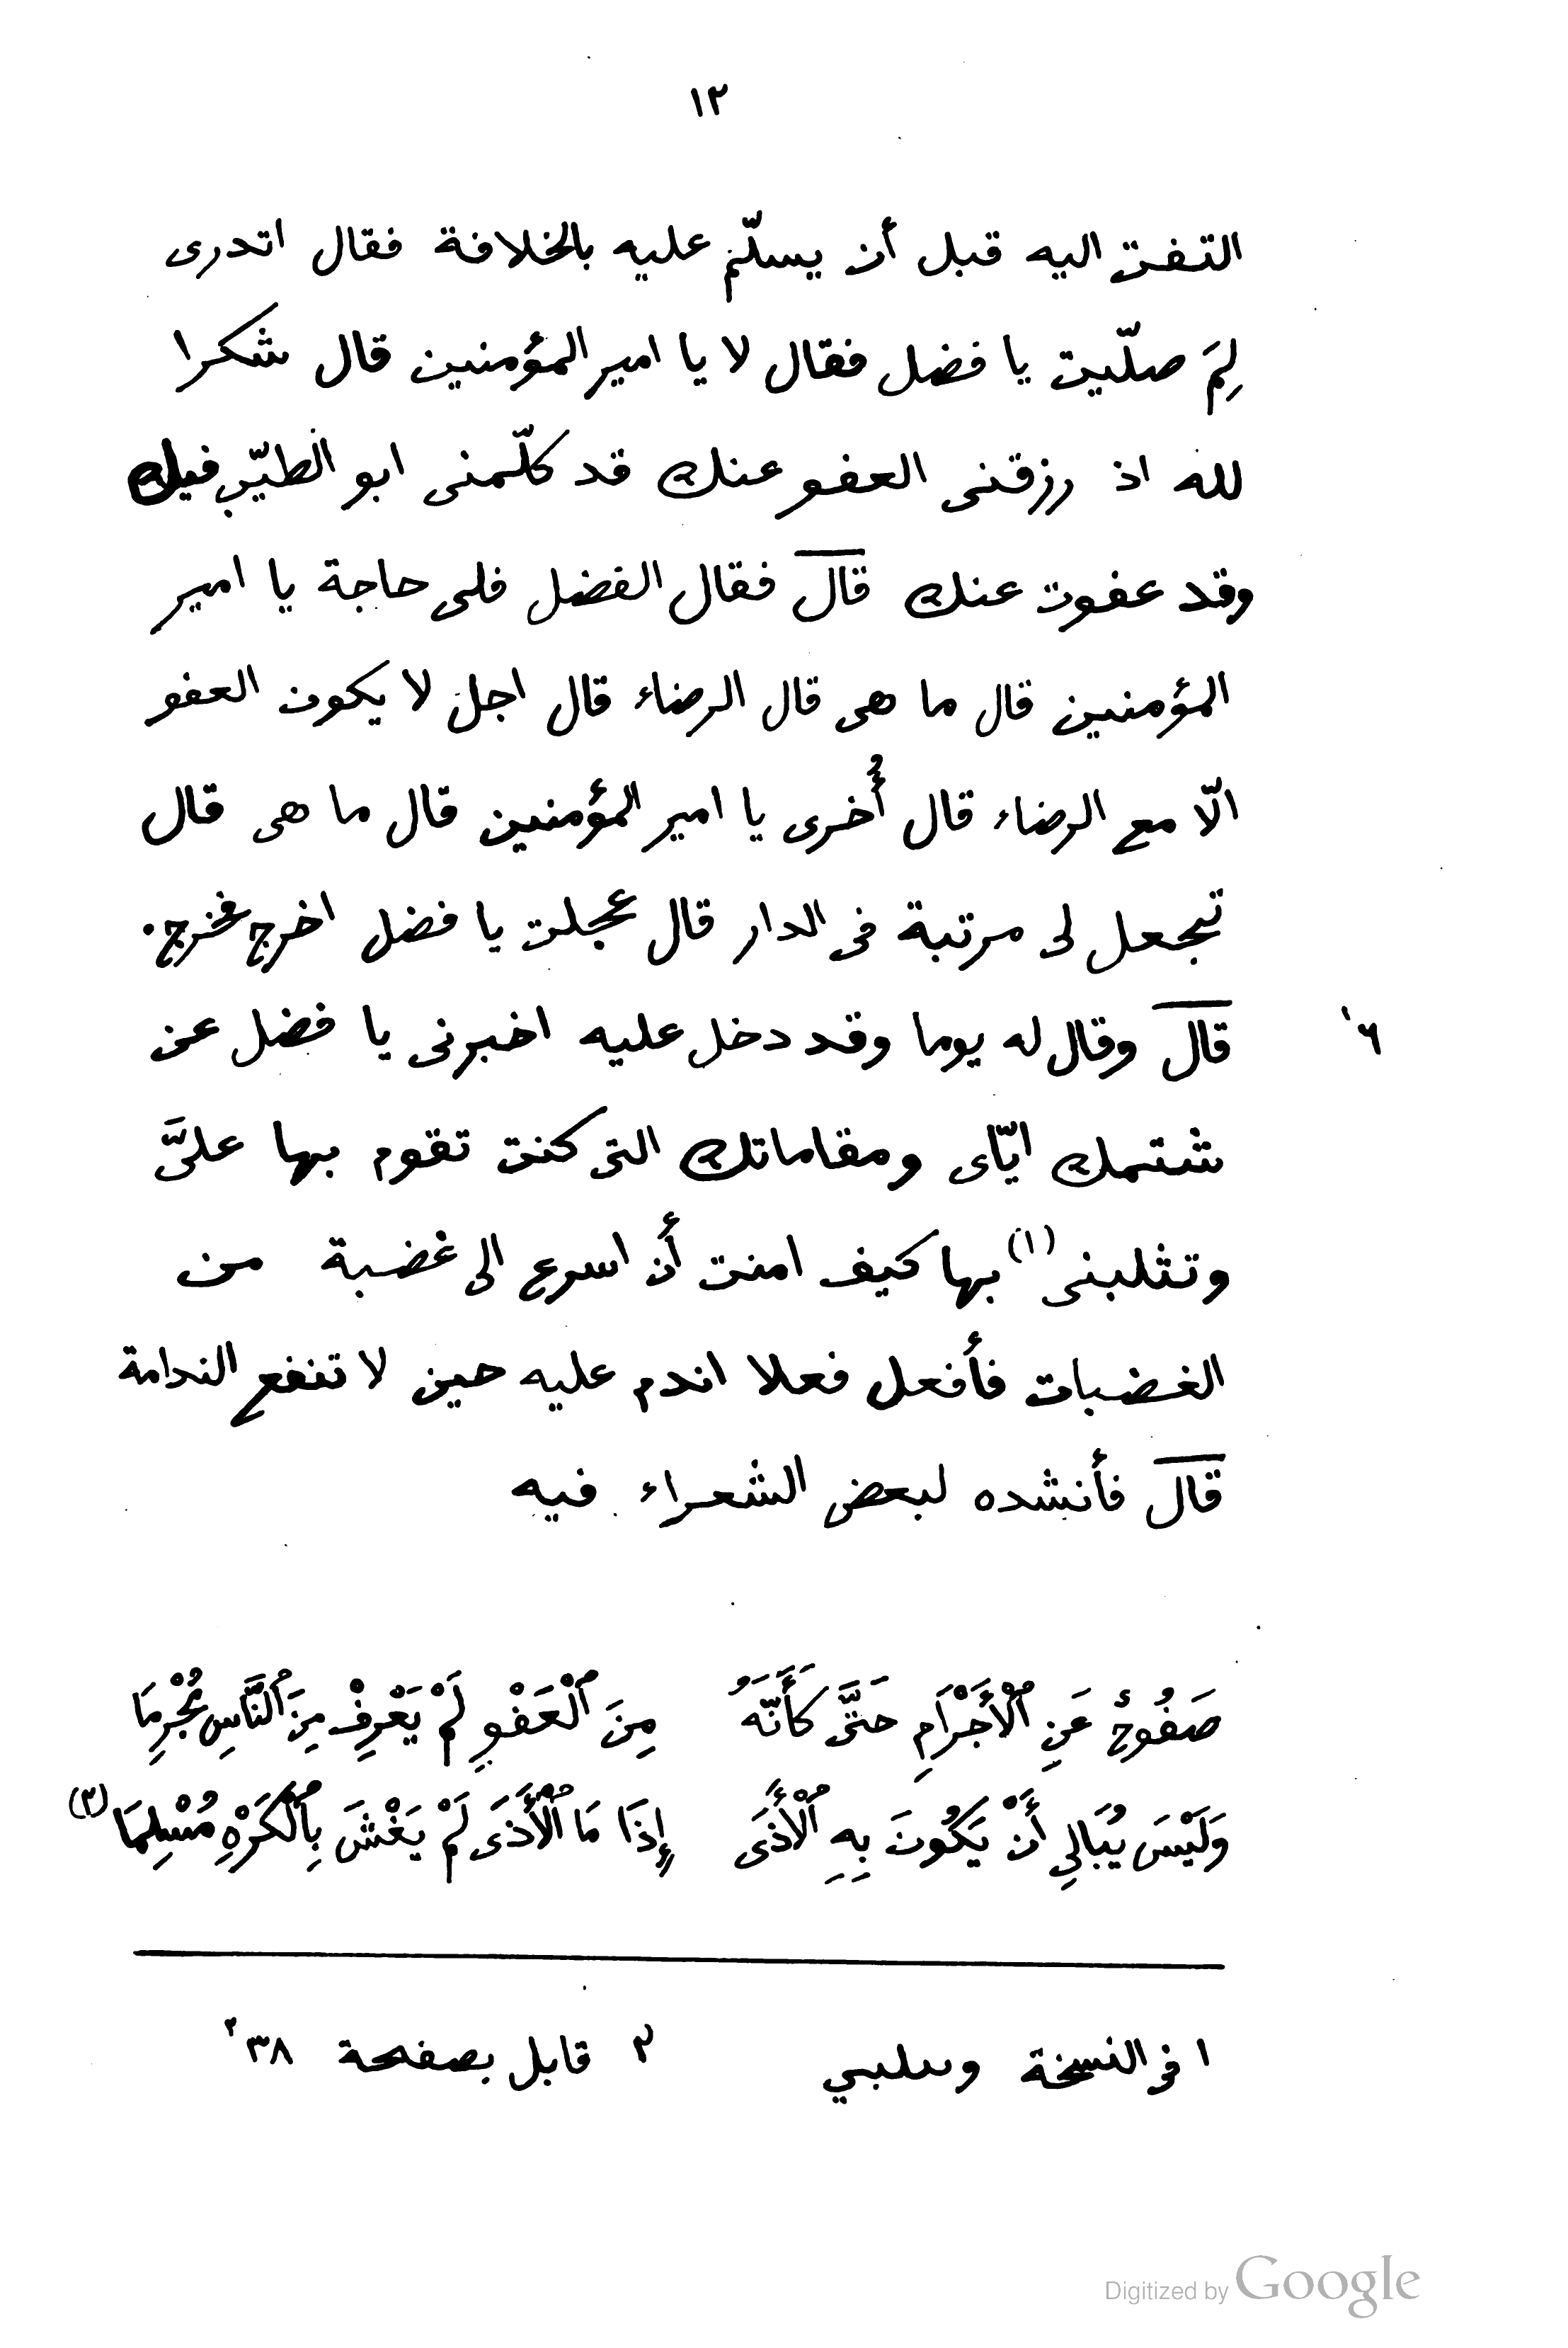 ١٢
التفت اليه قبل أن يسلّم عليه بالخلافة فقال اتدرى
لِمَ صلّيت يا فضل فقال لا يا امير المؤمنين قال شكرا
لله اذ رزقنى العفو عنك قد كلّمنى ابو الطيّب فيك
وقد عفوت عنك قال فقال الفضل فلى حاجة يا امير
المؤمنين قال ما هى قال الرضاء قال اجل لا يكون العفو
الّا مع الرضاء قال أُخرى يا امير المؤمنين قال ما هى قال
تجعل لى مرتبة فى الدار قال عجلت يا فضل اخرج فخرج.
قال وقال له يوما وقد دخل عليه اخبرنى يا فضل عن ٦ا
شتمك ايّاى ومقاماتك التى كنت تقوم بها علىَّ
وتثلبنى (١) بها كيف امنت أن اسرع الى غضبة من
الغضبات فأفعل فعلا اندم عليه حين لا تنفع الندامة
قال فأنشده لبعض الشعراء فيه
صَفُوحٌ عَنِ ٱلْأَجْرَامِ حَتَّى كَأَنَّهُ مِنَ ٱلْعَفْوِ لَمْ يَعْرِفْ مِنَ ٱلنَّاسِ مُجْرِمَا
وَلَيْسَ يُبَالِي أَنْ يَكُونَ بِهِ ٱلْأَذَى إِذَا مَا ٱلْأَذَى لَمْ يَغْشَ بِٱلْكَرْهِ مُسْلِمَا (٢)
١ فى النسخة وٮٮلٮٮي ٢ قابل بصفحة ٣٨ ٢
Digitized by Google